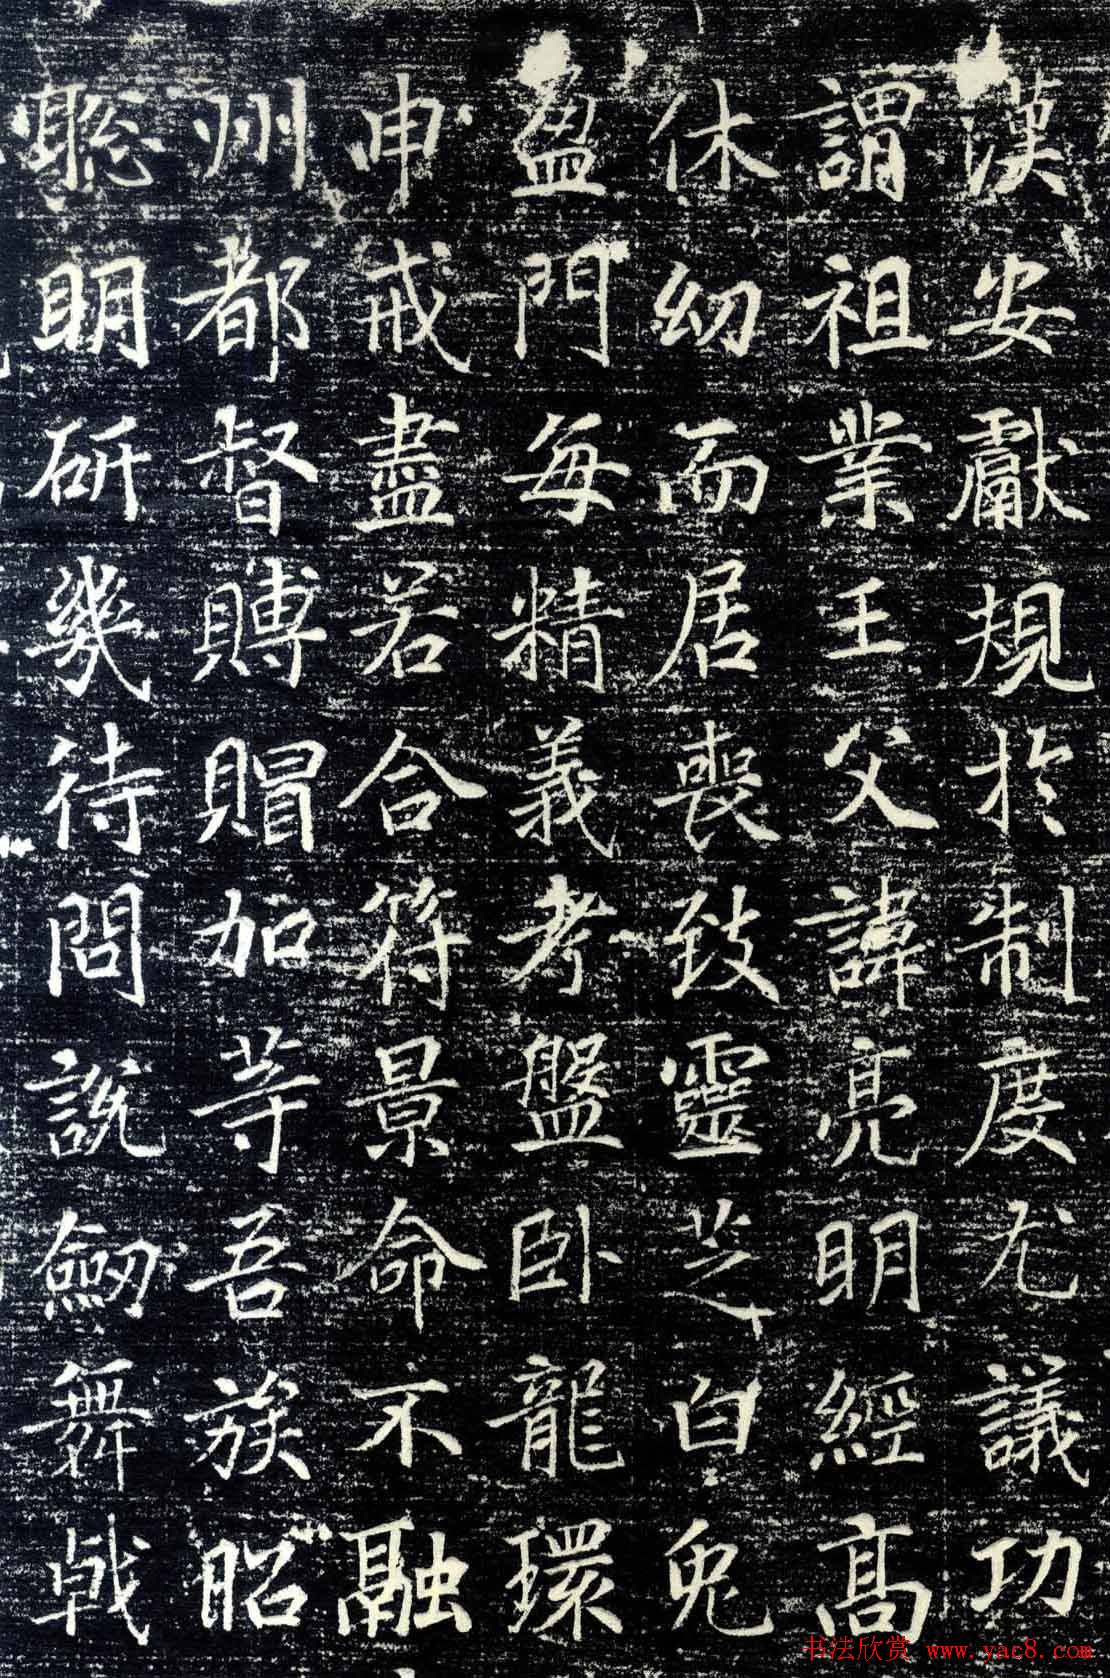 漢安獻規於制度尤議功
謂祖業王父諱亮明經高
休幼而居喪致靈芝白兔
盈門每精義考盤卧龍環
申戒盡若合符景命不融
州都督賻賵加等吾族昭
聡明研幾待問説劒舞戟
书法欣赏 www.yac8.com